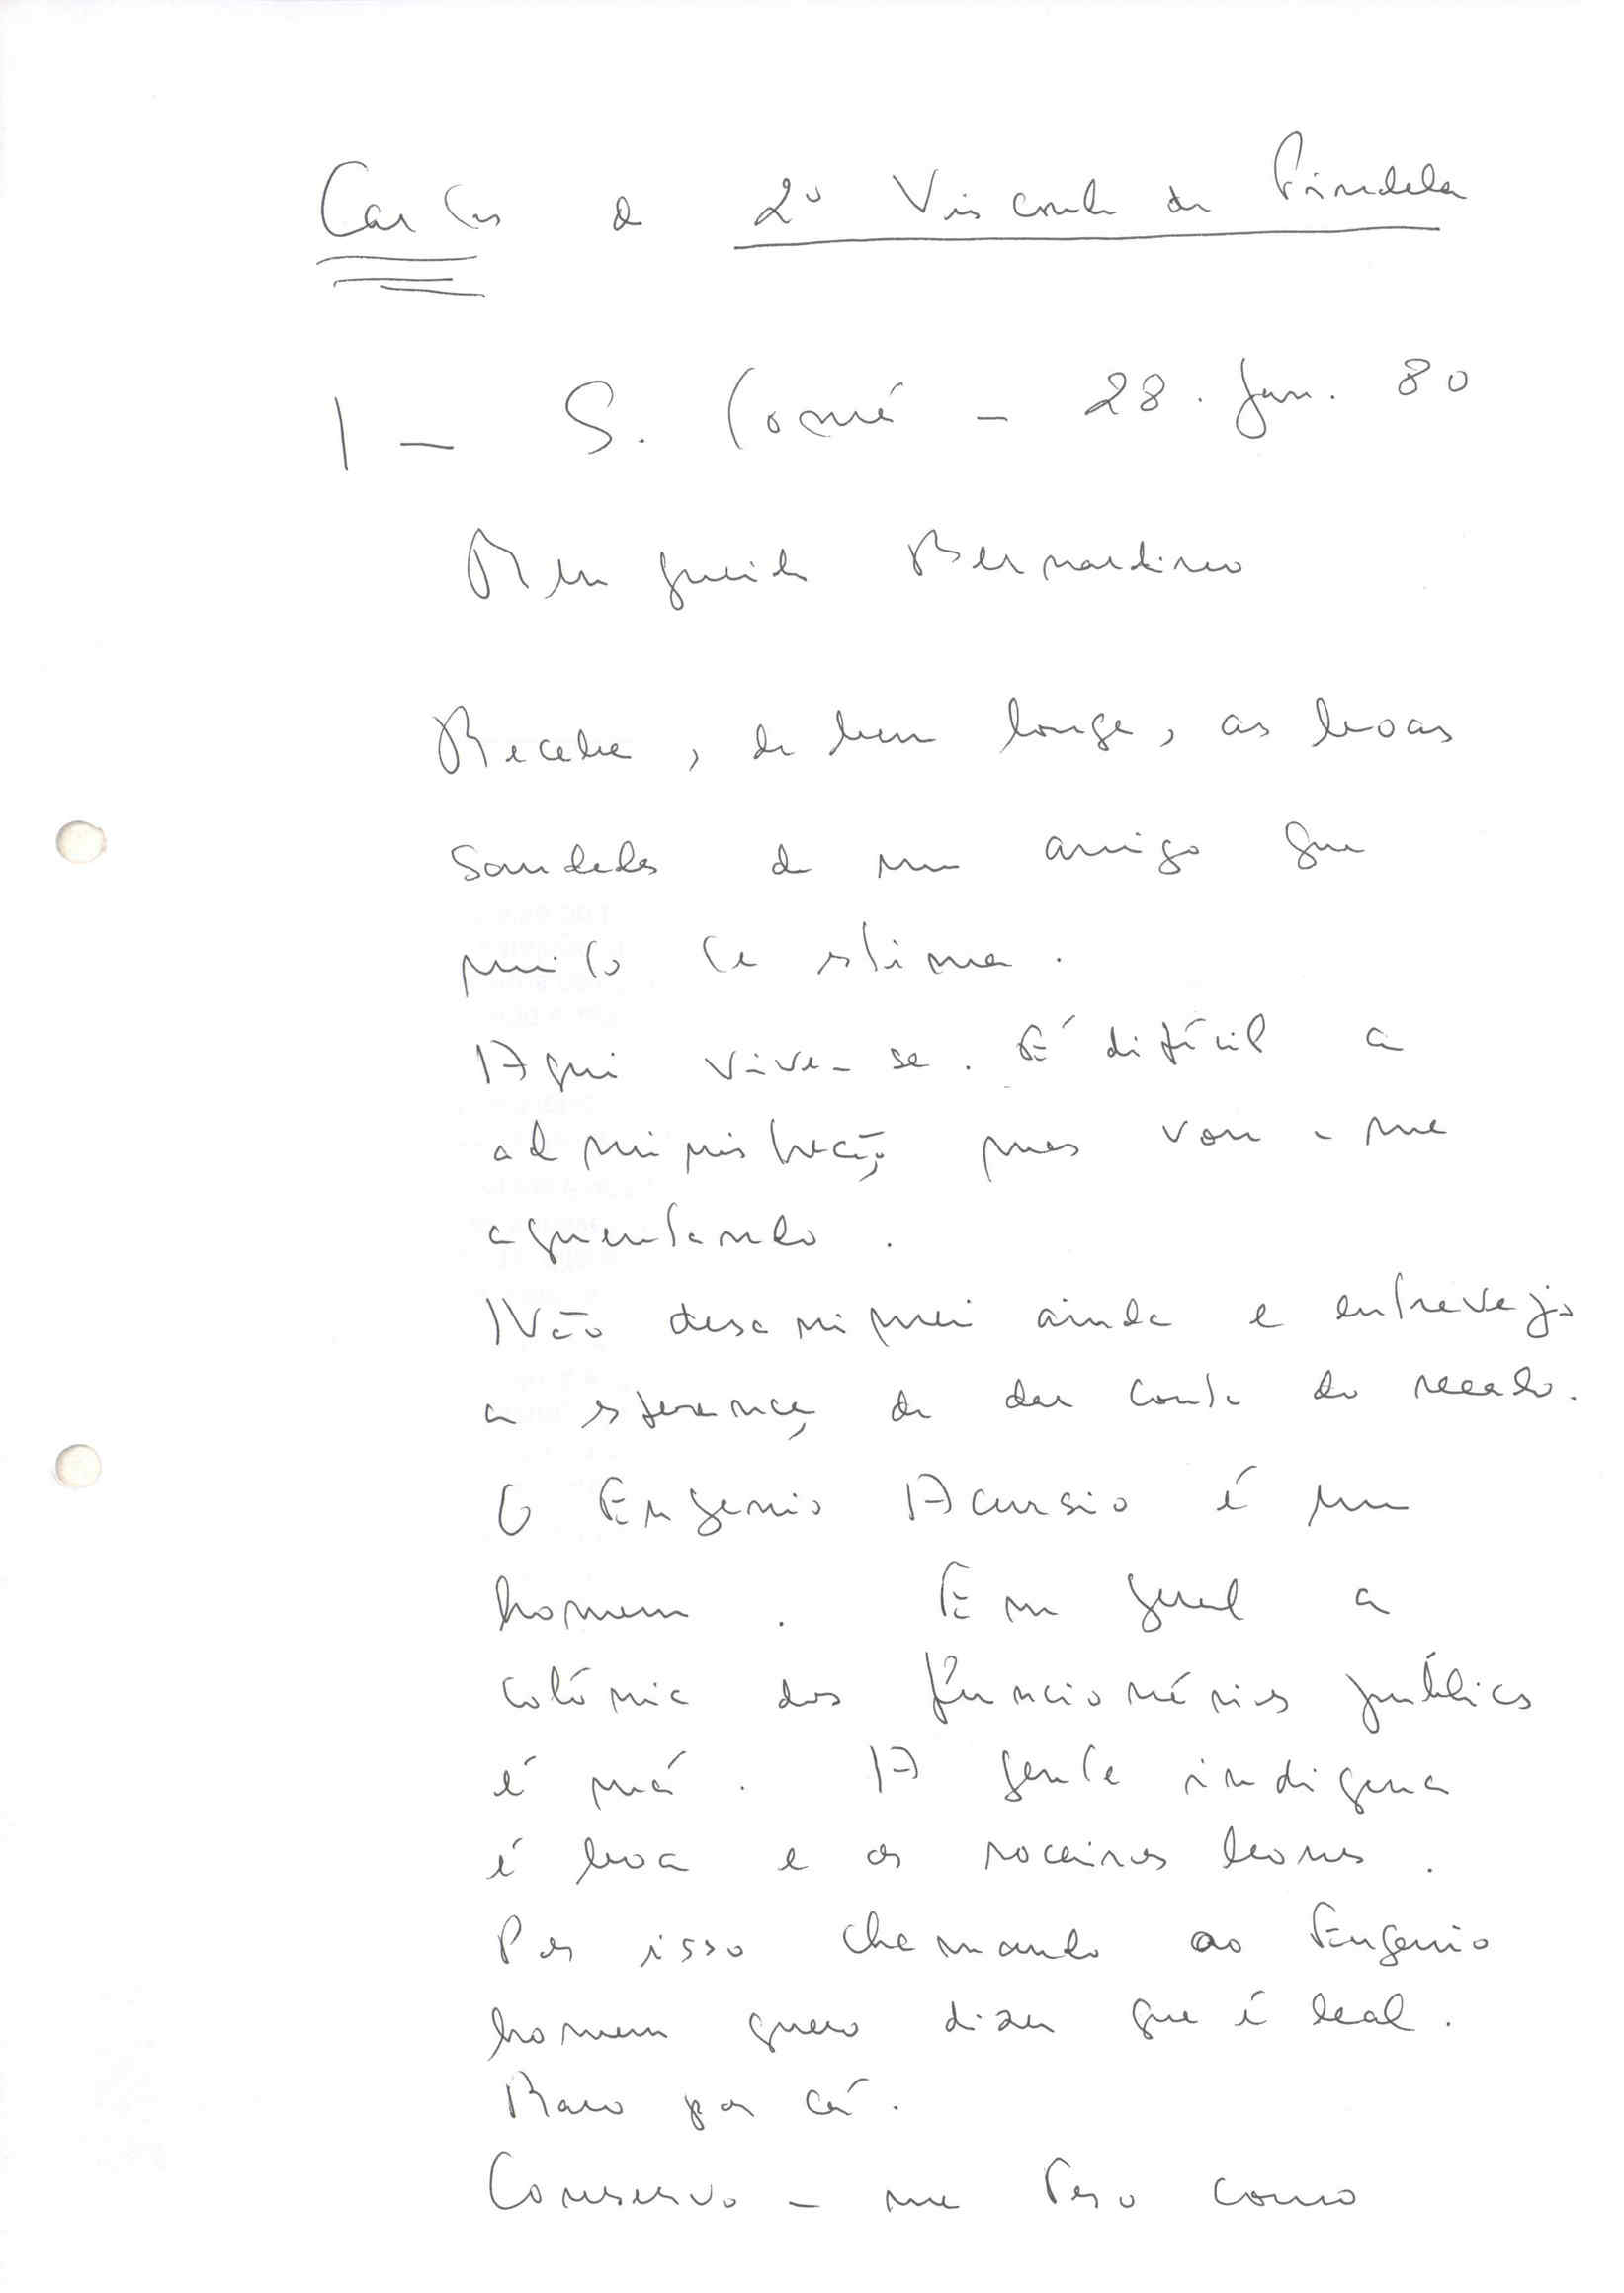 Cartas do 2º Visconde de Pindela
1 - S. Tomé - 28. Jan. 80
Meu querido Bernardino
Recebe, de bem longe, as boas
saudades de um amigo que
muito te estima.
Aqui vive-se. É difícil a
administração mas vou-me
aguentando.
Não desanimei ainda e entrevejo
a esperança de dar conta do recado.
O Eugenio Acursio é um
homem. Em geral a
colónia dos funcionários públicos
é má. A gente indigena
é boa e os roceiros bons.
Por isso chamando ao Eugenio
homem quero dizer que é leal.
Raro por cá.
Conservo-me teso como